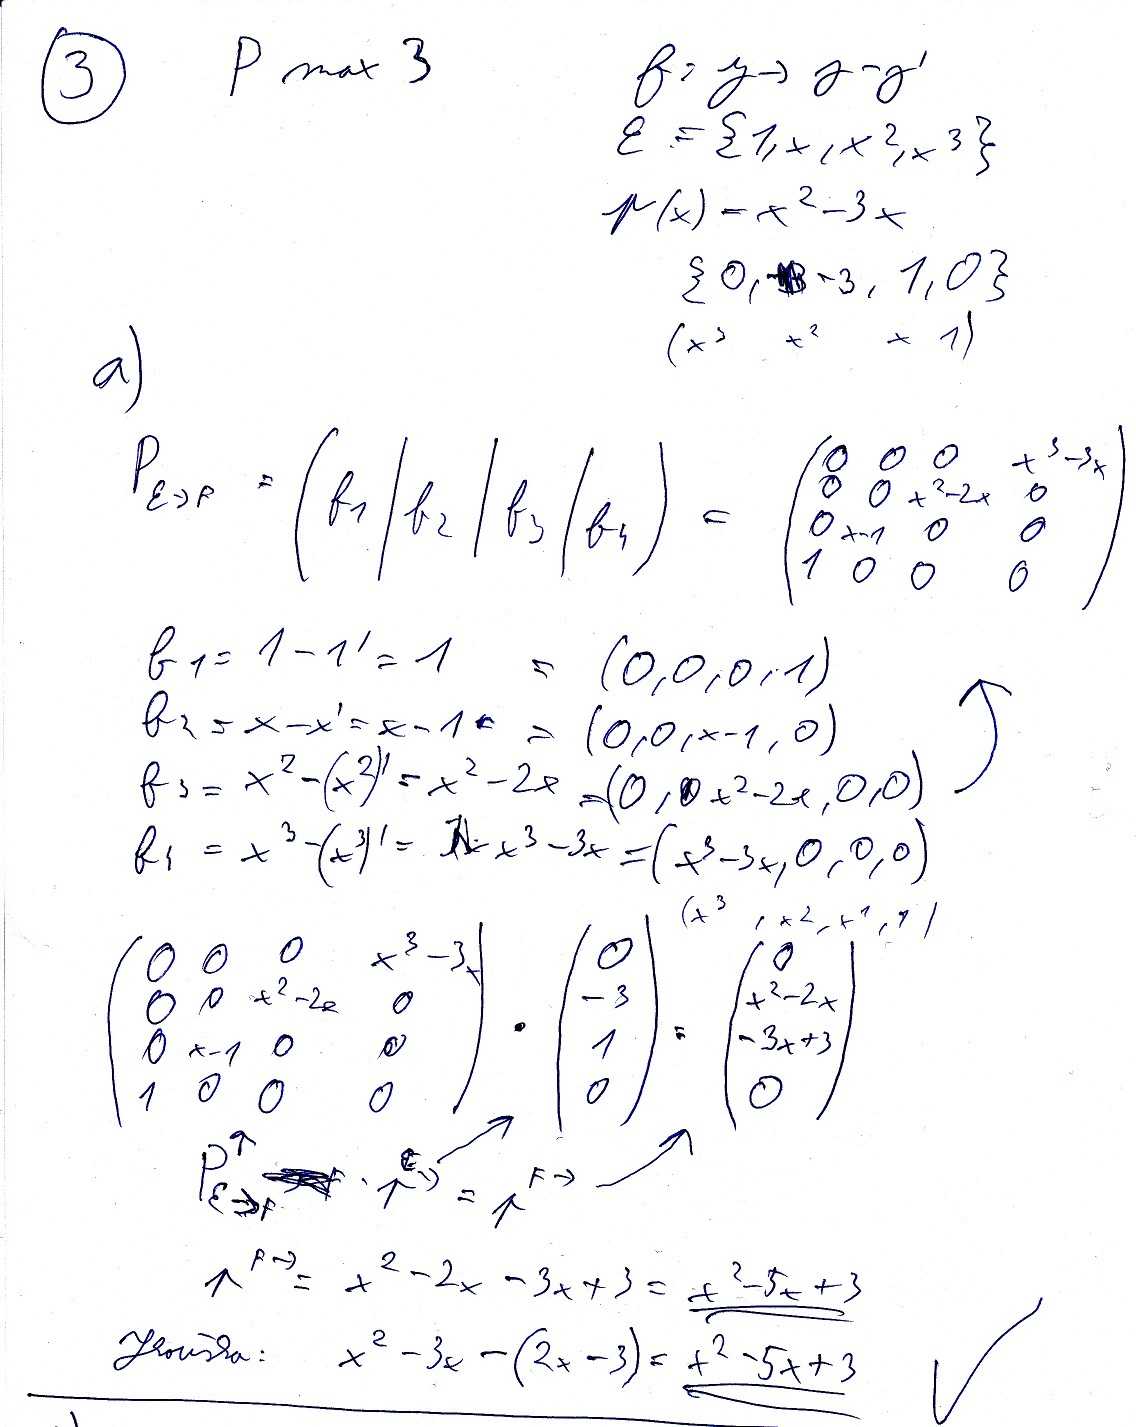 3 P max 3
f: y → y - y'
ε = {1, x, x², x³}
p(x) = x² - 3x
{0, -3, 1, 0}
(x³ x² x 1)
a)
P_{ε→F} = ( f₁ | f₂ | f₃ | f₄ ) =
0 0 0 x³-3x
0 0 x²-2x 0
0 x-1 0 0
1 0 0 0
f₁ = 1 - 1' = 1 = (0, 0, 0, 1)
f₂ = x - x' = x - 1 = (0, 0, x-1, 0)
f₃ = x² - (x²)' = x² - 2x = (0, x²-2x, 0, 0)
f₄ = x³ - (x³)' = x³ - 3x = (x³-3x, 0, 0, 0)
(x³, x², x¹, 1)
0 0 0 x³-3x 0 0
0 0 x²-2x 0 -3 x²-2x
0 x-1 0 0 · 1 = -3x+3
1 0 0 0 0 0
P_{ε→F} · p^{ε→} = p^{F→}
p^{F→} = x² - 2x - 3x + 3 = x² - 5x + 3
Zkouška: x² - 3x - (2x - 3) = x² - 5x + 3 ✓